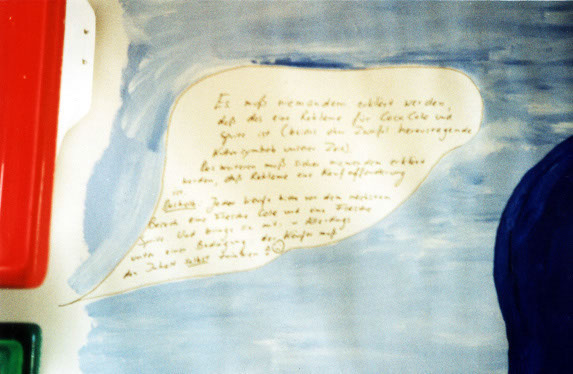 Es muß niemandem erklärt werden,
daß das eine Reklame für Coca Cola und
Sprite ist (beides ohne Zweifel herausragende
Kultursymbole unserer Zeit).
Des weiteren muß sicher niemandem erklärt
werden, daß Reklame eine Kaufaufforderung
ist.
Deshalb: Jeder kaufe bitte vor dem nächsten
Besuch eine Flasche Cola und eine Flasche
Sprite. Und bringe sie mit. Allerdings
unter einer Bedingung: der Käufer muß
den Inhalt selbst trinken!